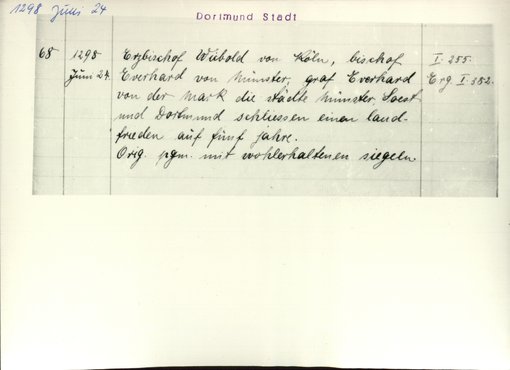 1298 Juni 24
Dortmund Stadt
68 1298 Erzbischof Wibold von Köln, bischof I. 255.
Juni 24. Everhard von Münster, graf Everhard Erg. I. 352.
von der Mark die städte Münster, Soest
und Dortmund schliessen einen land-
frieden auf fünf jahre.
Orig. pgm. mit wohlerhaltenen siegeln